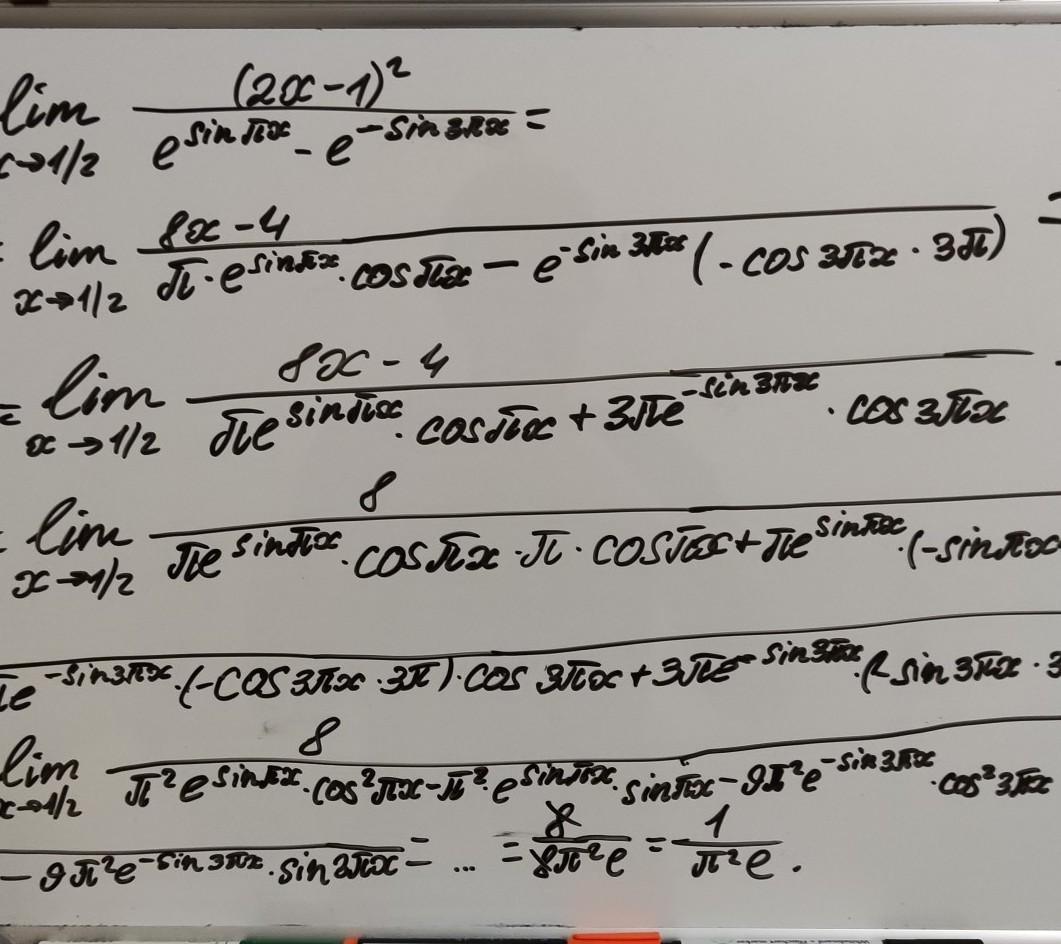 lim x→1/2 (2x-1)² / (e^(sin πx) - e^(-sin 3πx)) =
= lim x→1/2 (8x-4) / (π·e^(sin πx)·cos πx - e^(-sin 3πx)(-cos 3πx·3π)) =
= lim x→1/2 (8x-4) / (πe^(sin πx)·cos πx + 3πe^(-sin 3πx)·cos 3πx)
lim x→1/2 8 / (πe^(sin πx)·cos πx·π·cos πx + πe^(sin πx)·(-sin πx
πe^(-sin 3πx)·(-cos 3πx·3π)·cos 3πx + 3πe^(-sin 3πx)·(-sin 3πx·3
lim x→1/2 8 / (π²e^(sin πx)·cos²πx - π²·e^(sin πx)·sin πx - 9π²e^(-sin 3πx)·cos²3πx
- 9π²e^(-sin 3πx)·sin 3πx = ... = 8/(8π²e) = 1/(π²e).